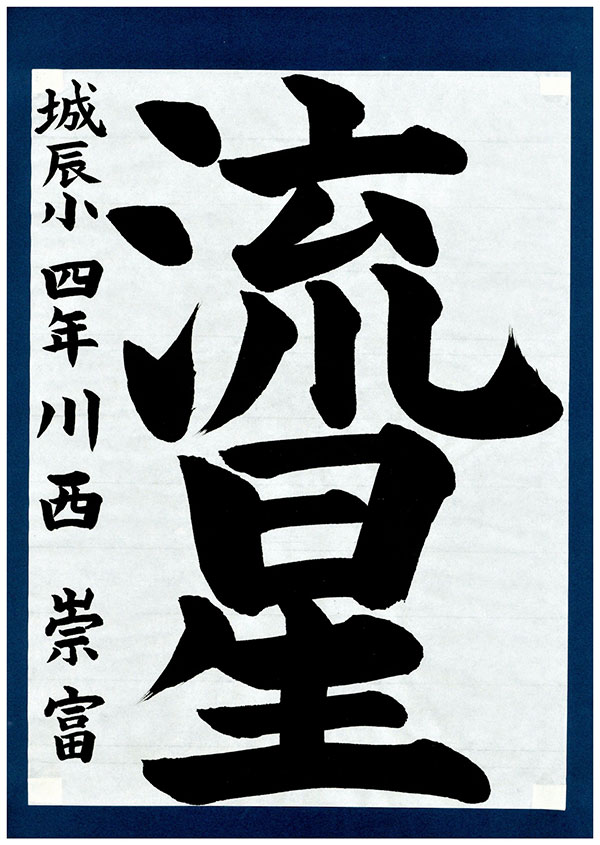 流星
城辰小 四年 川西 崇富